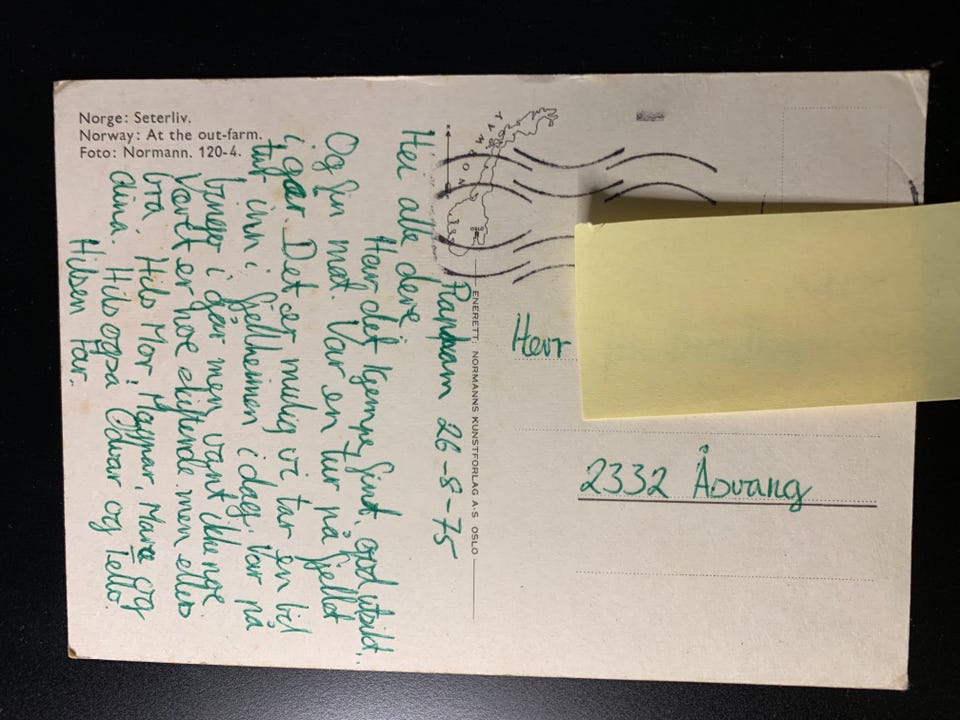 Norge: Seterliv.
Norway: At the out-farm.
Foto: Normann. 120-4.
NORWAY
OSLO
ENERETT: NORMANNS KUNSTFORLAG A·S OSLO
26-8-75
Hei alle dere!
Har det kjempe fint, god utsikt.
Og fin mat. Var en tur på fjellet
i går. Det er mulig vi tar en bil
tur inn i fjellheimen i dag. Var på
bingo i går men vant ikke noe.
Været er noe skiftende men ellers
bra. Hils Mor, Magnar, Mara og
dina. Hils også Odvar og Tello.
Hilsen Far.
Herr
2332 Åsvang